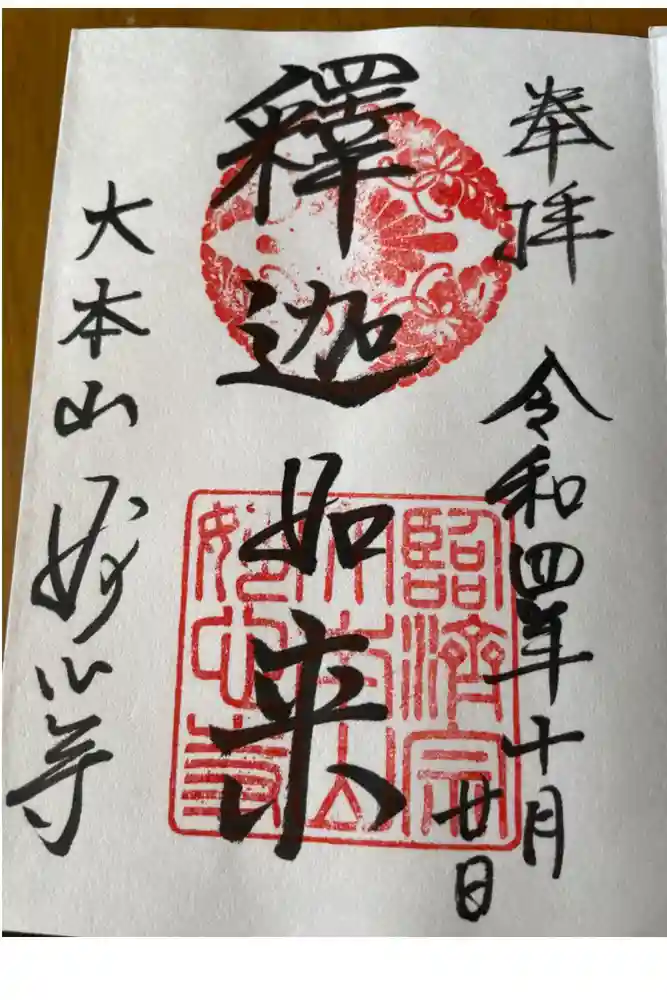 奉拝
令和四年十月
廿日
釋迦如来
臨濟宗
大本山
妙心寺
大本山妙心寺